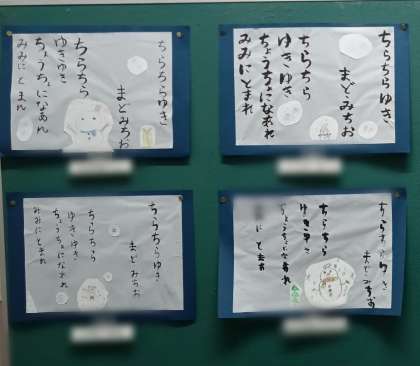 ちらちらゆき
まどみちお
ちらちら
ゆきゆき
ちょうちょになあれ
みみにとまれ
ちらちらゆき
まどみちお
ちらちら
ゆきゆき
ちょうちょになあれ
みみにとまれ
ちらちらゆき
まどみちお
ちらちら
ゆきゆき
ちょうちょになあれ
みみにとまれ
ちらちらゆき
まどみちお
ちらちら
ゆきゆき
ちょうちょになあれ
にとまれ